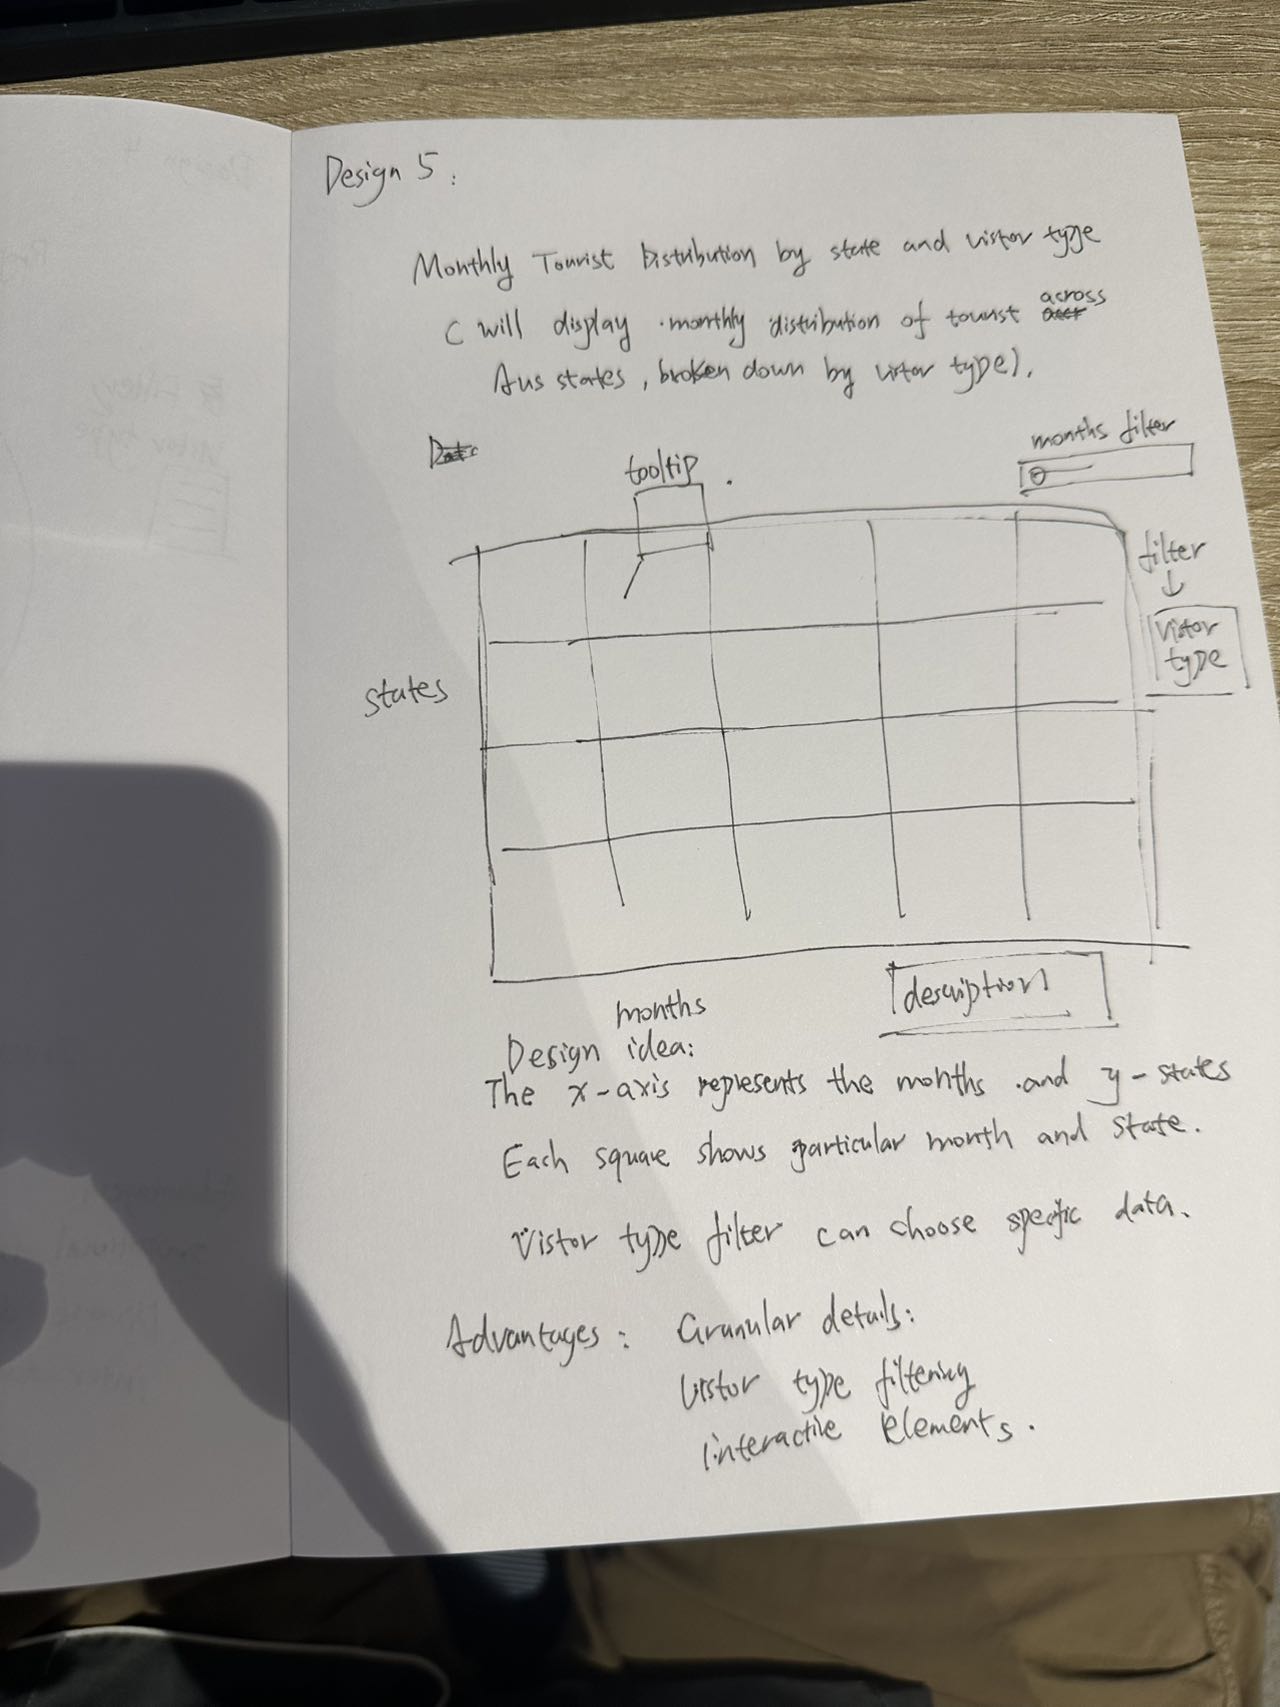 Design 5 :
Monthly Tourist Distribution by state and vistor type
( will display monthly distribution of tourist across
Aus states, broken down by vistor type).
months filter
tooltip
filter
↓
Vistor
type
states
description
months
Design idea:
The x-axis represents the months and y-states
Each square shows particular month and state.
Vistor type filter can choose specific data.
Advantages : Granular details:
Vistor type filtering
interactive elements.